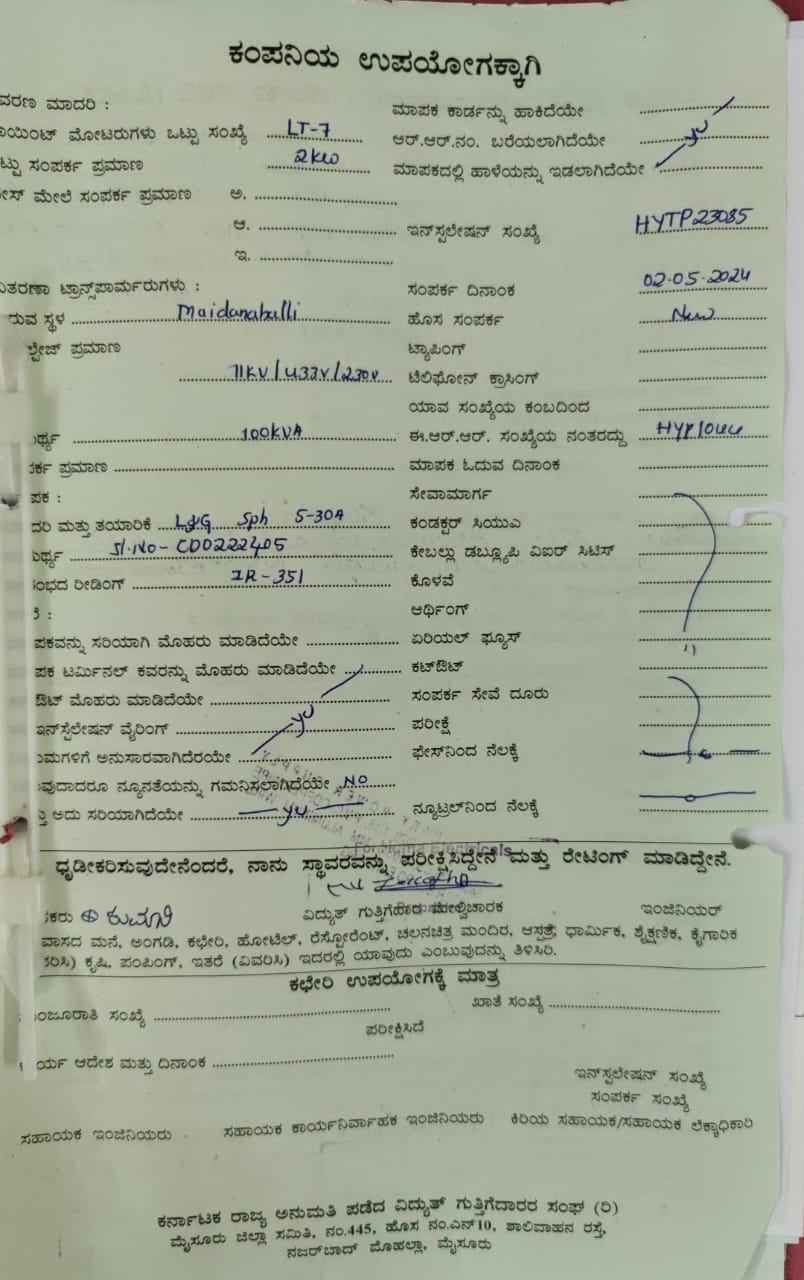 ಕಂಪನಿಯ ಉಪಯೋಗಕ್ಕಾಗಿ
ವರಣ ಮಾದರಿ : ಮಾಪಕ ಕಾರ್ಡನ್ನು ಹಾಕಿದೆಯೇ
ಾಯಿಂಟ್ ಮೋಟರುಗಳು ಒಟ್ಟು ಸಂಖ್ಯೆ LT-7 ಆರ್.ಆರ್.ನಂ. ಬರೆಯಲಾಗಿದೆಯೇ
ಟ್ಟು ಸಂಪರ್ಕ ಪ್ರಮಾಣ 2KW ಮಾಪಕದಲ್ಲಿ ಹಾಳೆಯನ್ನು ಇಡಲಾಗಿದೆಯೇ
ೇಸ್ ಮೇಲೆ ಸಂಪರ್ಕ ಪ್ರಮಾಣ ಅ.
ಆ. ಇನ್‌ಸ್ಟಲೇಷನ್ ಸಂಖ್ಯೆ HYTP23085
ಇ.
ಿತರಣಾ ಟ್ರಾನ್ಸ್‌ಪಾರ್ಮರುಗಳು : ಸಂಪರ್ಕ ದಿನಾಂಕ 02-05-2024
ರುವ ಸ್ಥಳ Maidanahalli ಹೊಸ ಸಂಪರ್ಕ New
ಲ್ಟೇಜ್ ಪ್ರಮಾಣ ಟ್ಯಾಪಿಂಗ್
11KV/433V/230V ಟೆಲಿಫೋನ್ ಕ್ರಾಸಿಂಗ್
ಯಾವ ಸಂಖ್ಯೆಯ ಕಂಬದಿಂದ
ರ್ಥ್ಯ 100KVA ಈ.ಆರ್.ಆರ್. ಸಂಖ್ಯೆಯ ನಂತರದ್ದು
ರ್ಕ ಪ್ರಮಾಣ ಮಾಪಕ ಓದುವ ದಿನಾಂಕ
ಪಕ : ಸೇವಾಮಾರ್ಗ
ದರಿ ಮತ್ತು ತಯಾರಿಕೆ L&G Sph 5-30A ಕಂಡಕ್ಟರ್ ಸಿಯುಎ
ರ್ಥ್ಯ Sl.No- CD0222405 ಕೇಬಲ್ಲು ಡಬ್ಲ್ಯೂಪಿ ವಿಐರ್ ಸಿಟಿಸ್
ಂಭದ ರೀಡಿಂಗ್ IR-351 ಕೊಳವೆ
ೆ : ಆರ್ಥಿಂಗ್
ಪಕವನ್ನು ಸರಿಯಾಗಿ ಮೊಹರು ಮಾಡಿದೆಯೇ ಏರಿಯಲ್ ಫ್ಯೂಸ್
ಪಕ ಟರ್ಮಿನಲ್ ಕವರನ್ನು ಮೊಹರು ಮಾಡಿದೆಯೇ ಕಟ್‌ಔಟ್
ಔಟ್ ಮೊಹರು ಮಾಡಿದೆಯೇ ಸಂಪರ್ಕ ಸೇವೆ ದೂರು
ಇನ್‌ಸ್ಟಲೇಷನ್ ವೈರಿಂಗ್ ಪರೀಕ್ಷೆ
ಮಗಳಿಗೆ ಅನುಸಾರವಾಗಿದೆರಯೇ ಫೇಸ್‌ನಿಂದ ನೆಲಕ್ಕೆ
ವುದಾದರೂ ನ್ಯೂನತೆಯನ್ನು ಗಮನಿಸಲಾಗಿದೆಯೇ NO
ತ್ತು ಅದು ಸರಿಯಾಗಿದೆಯೇ ನ್ಯೂಟ್ರಲ್‌ನಿಂದ ನೆಲಕ್ಕೆ
Electricals
ಧೃಡೀಕರಿಸುವುದೇನೆಂದರೆ, ನಾನು ಸ್ಥಾವರವನ್ನು ಪರೀಕ್ಷಿಸಿದ್ದೇನೆ ಮತ್ತು ರೇಟಿಂಗ್ ಮಾಡಿದ್ದೇನೆ.
ಕರು ವಿದ್ಯುತ್ ಗುತ್ತಿಗೆದಾರ ಮೇಲ್ವಿಚಾರಕ ಇಂಜಿನಿಯರ್
ವಾಸದ ಮನೆ, ಅಂಗಡಿ, ಕಛೇರಿ, ಹೋಟೆಲ್, ರೆಸ್ಟೋರೆಂಟ್, ಚಲನಚಿತ್ರ ಮಂದಿರ, ಆಸ್ಪತ್ರೆ, ಧಾರ್ಮಿಕ, ಶೈಕ್ಷಣಿಕ, ಕೈಗಾರಿಕ
ರಿಸಿ) ಕೃಷಿ, ಪಂಪಿಂಗ್, ಇತರೆ (ವಿವರಿಸಿ) ಇದರಲ್ಲಿ ಯಾವುದು ಎಂಬುವುದನ್ನು ತಿಳಿಸಿರಿ.
ಕಛೇರಿ ಉಪಯೋಗಕ್ಕೆ ಮಾತ್ರ
ಂಜೂರಾತಿ ಸಂಖ್ಯೆ ಖಾತೆ ಸಂಖ್ಯೆ
ಪರೀಕ್ಷಿಸಿದೆ
ರ್ಯ ಆದೇಶ ಮತ್ತು ದಿನಾಂಕ
ಇನ್‌ಸ್ಟಲೇಷನ್ ಸಂಖ್ಯೆ
ಸಂಪರ್ಕ ಸಂಖ್ಯೆ
ಸಹಾಯಕ ಇಂಜಿನಿಯರು ಸಹಾಯಕ ಕಾರ್ಯನಿರ್ವಾಹಕ ಇಂಜಿನಿಯರು ಕಿರಿಯ ಸಹಾಯಕ/ಸಹಾಯಕ ಲೆಕ್ಕಾಧಿಕಾರಿ
ಕರ್ನಾಟಕ ರಾಜ್ಯ ಅನುಮತಿ ಪಡೆದ ವಿದ್ಯುತ್ ಗುತ್ತಿಗೆದಾರರ ಸಂಘ (ರಿ)
ಮೈಸೂರು ಜಿಲ್ಲಾ ಸಮಿತಿ, ನಂ.445, ಹೊಸ ನಂ.ಎನ್10, ಶಾಲಿವಾಹನ ರಸ್ತೆ,
ನಜರ್‌ಬಾದ್ ಮೊಹಲ್ಲಾ, ಮೈಸೂರು